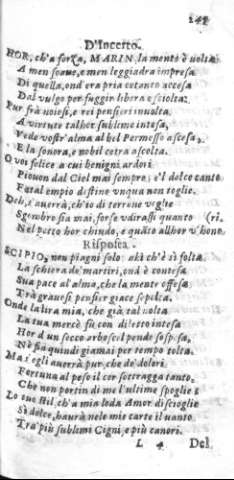 D'Incerto.
HOR, ch'a forza, MARIN, la mente è uolta
A men soaue, e men leggiadra impresa
Di quella, ond' era pria cotanto accesa
Dal vulgo per fuggir libera e sciolta:
Pur frà noiosi, e rei pensieri inuolta
A virtute talhor sublime intesa,
Vede vostr'alma al bel Permesso ascesa,
E la sonora, e nobil cetra ascolta.
O voi felice a cui benigni ardori
Piouon dal Ciel mai sempre; e'l dolce canto
Fatal empio destino vnqua non toglie.
Deh, s'auerrà, ch'io di terrene voglie
Sgombro sia mai, forse vdirassi quanto (ri.
Nel petto hor chiudo, e quãto allhor v'hono
Risposta.
SCIPIO, non piagni solo: ahi ch'è sì folta
La schiera de' martiri, ond' è contesa
Sua pace al alma, che la mente offesa
Trà grauosi pensier giace sepolta.
Onde la lira mia, che già tal uolta
La tua mercè fù con diletto intesa
Hor d'un secco arboscel pende sospesa,
Ne fia quindi giamai per tempo tolta.
Ma s'egli auerrà pur, che de' dolori
Fortuna al peso il cor sottragga tanto,
Che non portin di me l'ultime spoglie
Lo tuo stil, ch'a mia leda Amor discioglie
Sì dolce, haurà nele mie carte il uanto
Trà più sublimi Cigni, e più canori.
L 4 Del